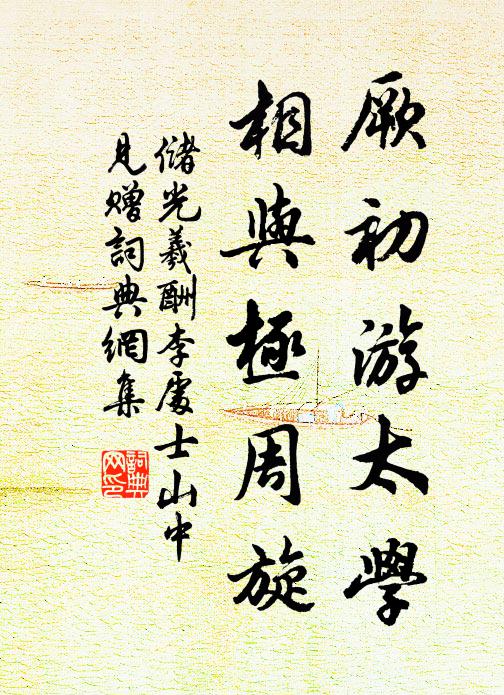 厥初游太學
相與極周旋
儲光羲酬李處士山中
見贈詞典網集
詞典
网印